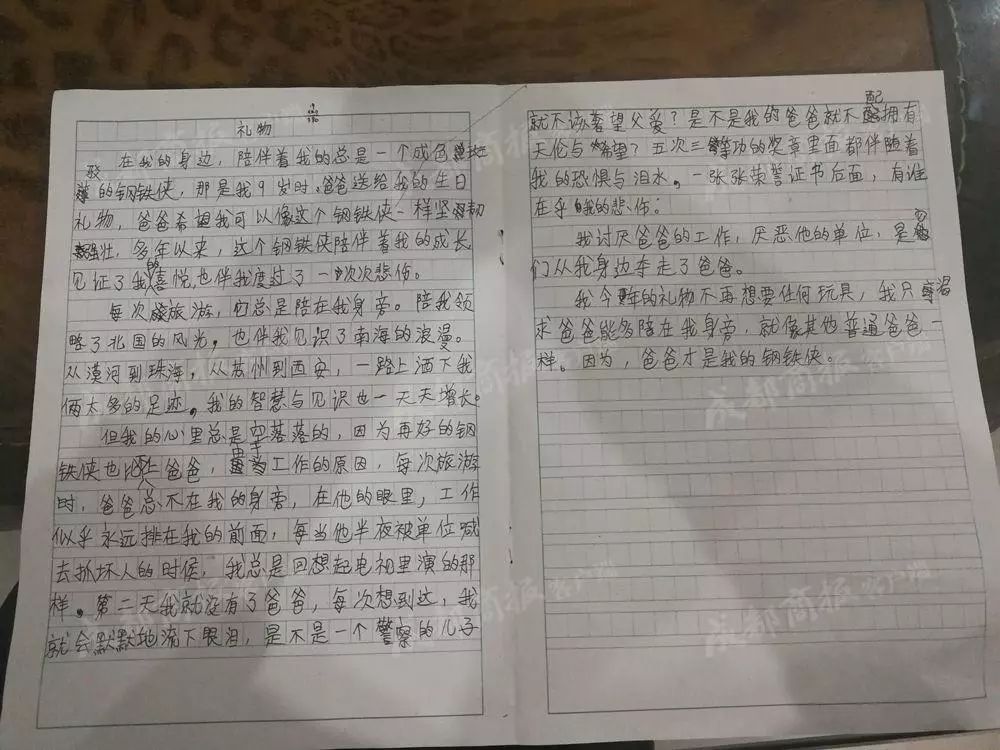 礼物
在我的身边，陪伴着我的总是一个成色
驳的钢铁侠，那是我9岁时爸爸送给我的生日
礼物，爸爸希望我可以像这个钢铁侠一样坚韧
强壮，多年以来，这个钢铁侠陪伴着我的成长
见证了我的喜悦，也伴我度过了一次次悲伤。
每次旅游，它总是陪在我身旁。陪我领
略了北国的风光，也伴我见识了南海的浪漫。
从漠河到珠海，从苏州到西安，一路上洒下我
俩太多的足迹。我的智慧与见识也一天天增长。
但我的心里总是空落落的，因为再好的钢
铁侠也比不上爸爸，由于工作的原因，每次旅游
时，爸爸总不在我的身旁，在他的眼里，工作
似乎永远排在我的前面，每当他半夜被单位喊
去抓坏人的时候，我总是回想起电视里演的那
样。第二天我就没有了爸爸，每次想到这，我
就会默默地流下眼泪，是不是一个警察的儿子
就不该奢望父爱？是不是我的爸爸就不配拥有
天伦与希望？五次三等功的奖章里面都伴随着
我的恐惧与泪水。一张张荣誉证书后面，有谁
在乎我的悲伤。
我讨厌爸爸的工作，厌恶他的单位，是
们从我身边夺走了爸爸。
我今年的礼物不再想要任何玩具，我只渴
求爸爸能多陪在我身旁，就像其他普通爸爸一
样。因为，爸爸才是我的钢铁侠。
成都商报客户端
成都商报客户端
成都商报客户端